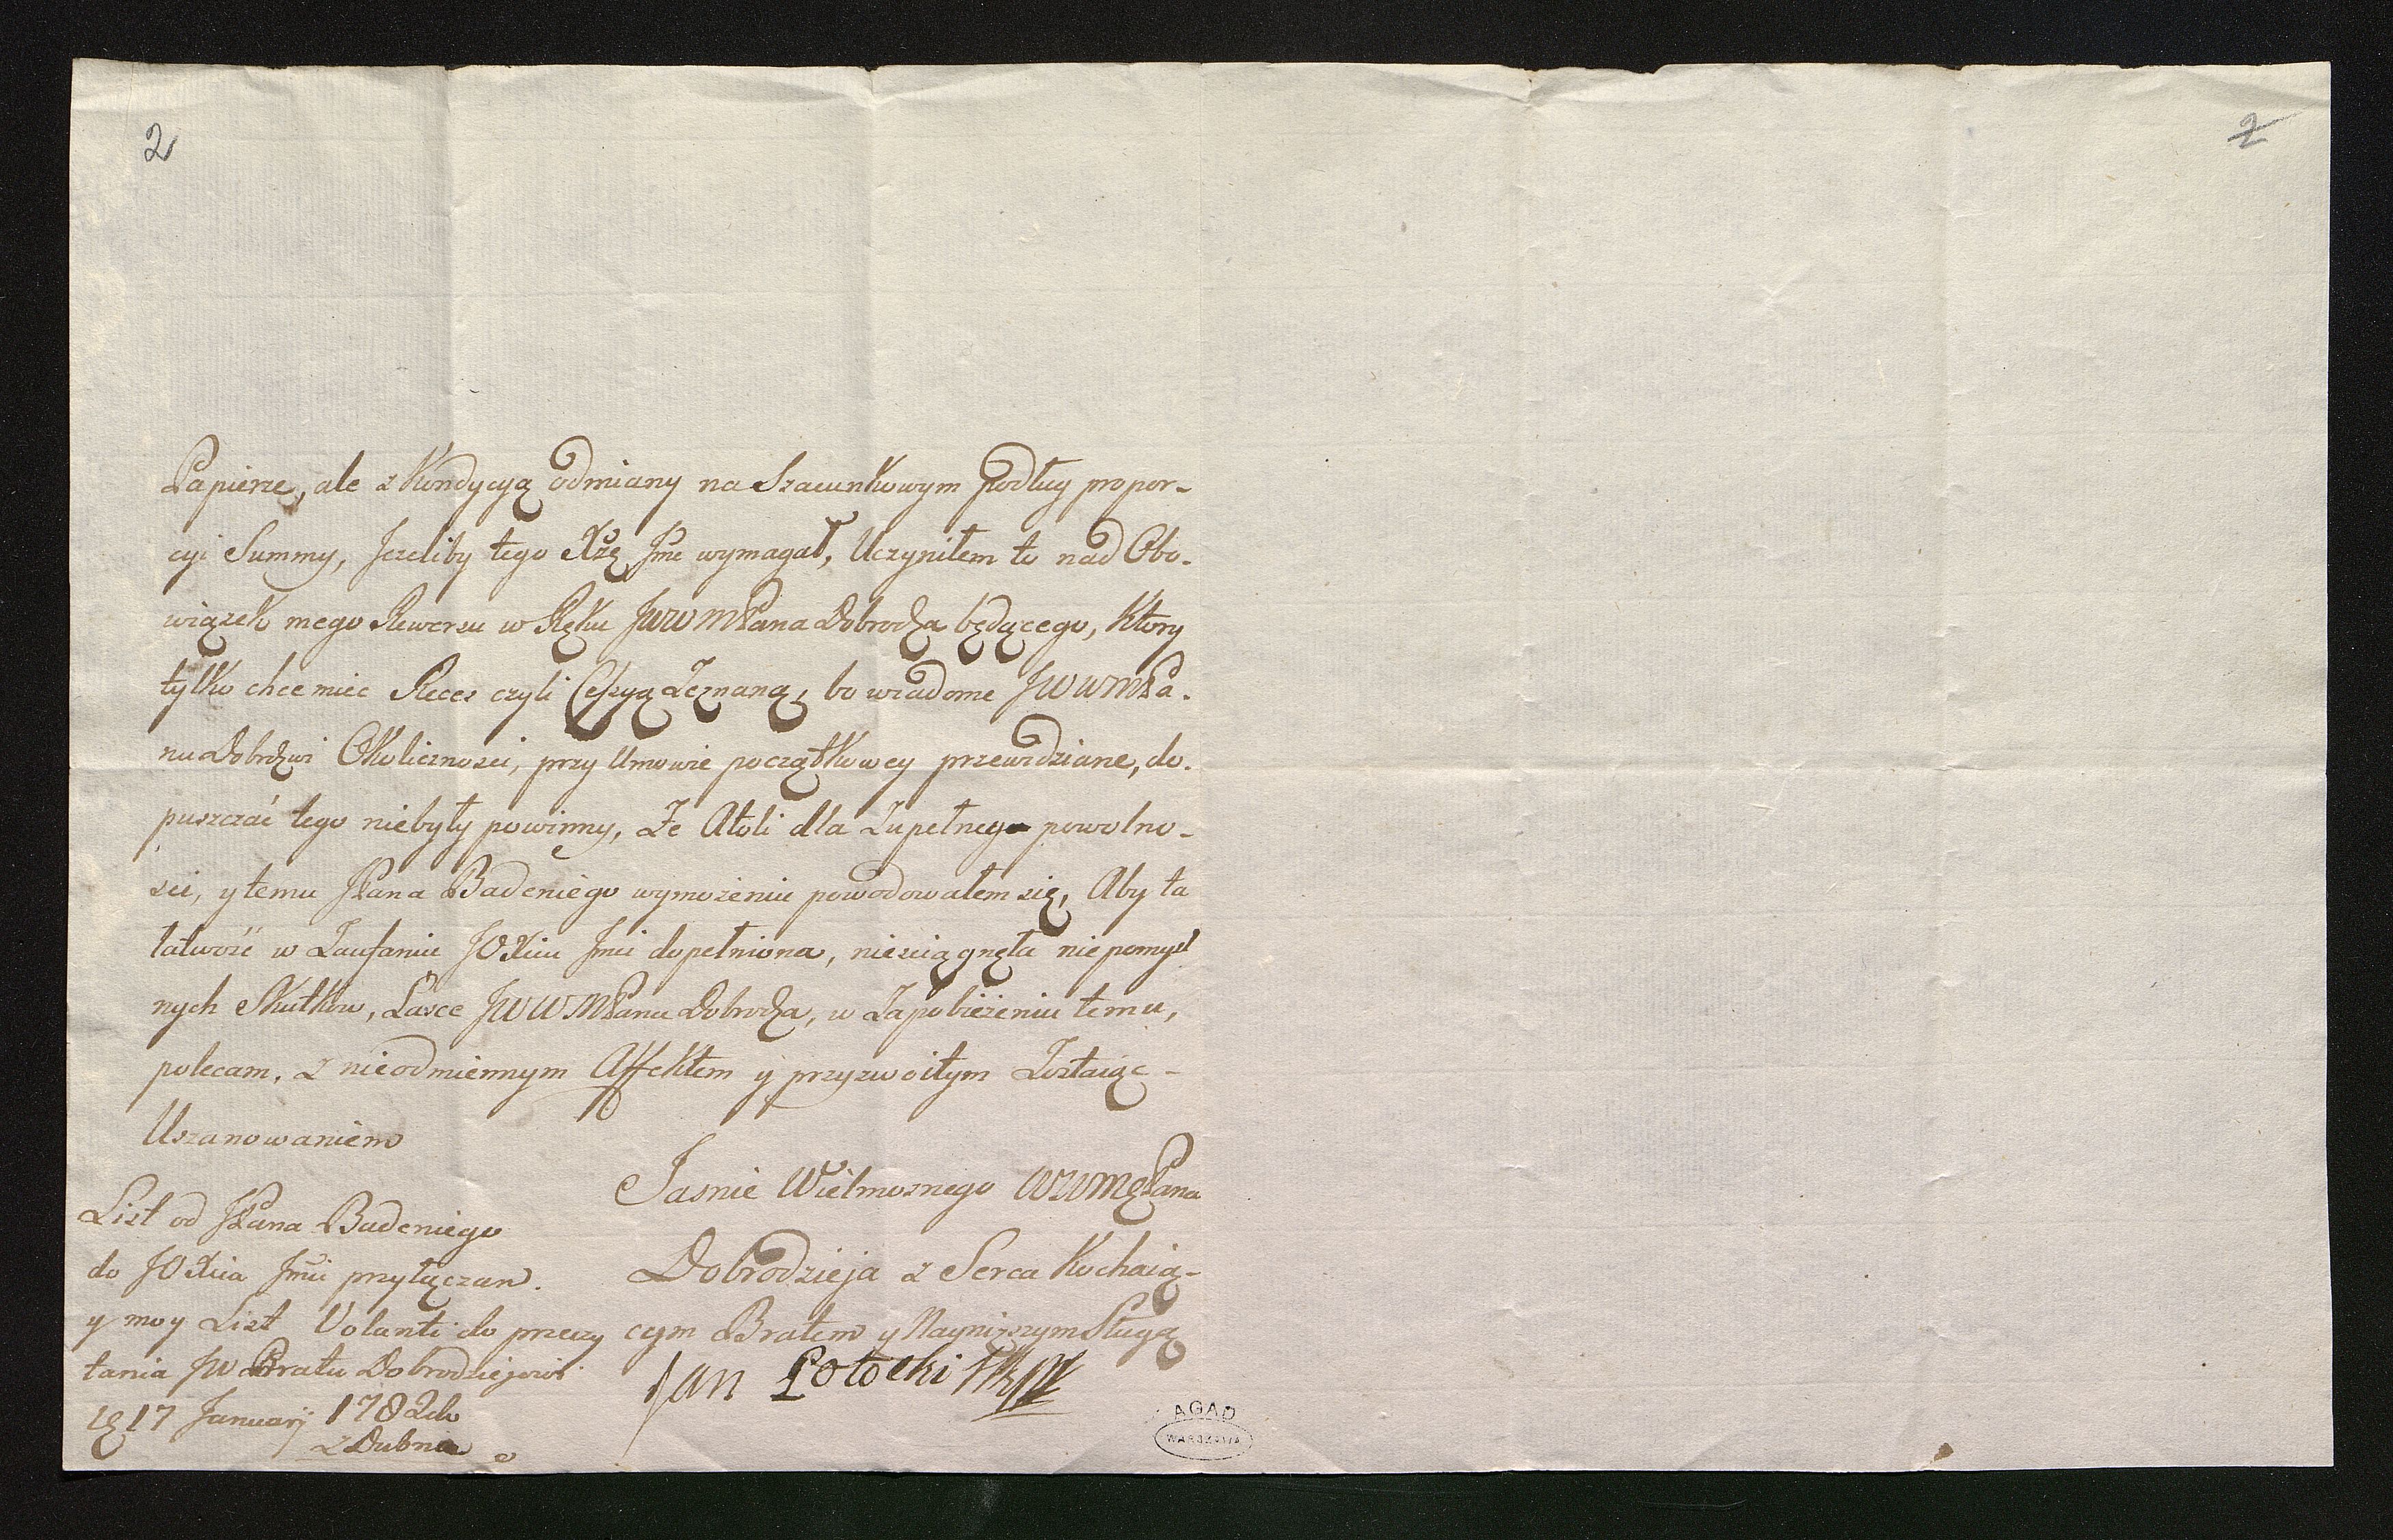 2
2
Papierze, ale z Kondycyą odmiany na Szacunkowym podług propor-
cyi Summy, Jezeliby tego Xżę Jmc wymagał, Uczyniłem to nad Obo-
wiązek mego Rewersu w Ręku JWWMPana Dobrodza będącego, Ktory
tylko chce miec Reces czyli Cessyą Zeznaną, bo wiadome JWWMPa-
nu Dobrdzwi Okolicznosci, przy Umowie początkowey przewidziane, do-
puszczać tego niebyły powinny, Ze Atoli dla Zupełnego powolno-
sci, y temu JPana Badeniego wymożeniu powodowałem się, Aby ta
łatwość w Zaufaniu JOXciu Jmci dopełniona, niesciągnęła niepomysl
nych Skutkow, Łasce JWWMPana Dobrodza, w Zapobieżeniu temu,
polecam, z nieodmiennym Affektem y przyzwoitym Zostaiąc-
Uszanowaniem
Jasnie Wielmoznego WWMęPana
Dobrodzieja z Serca Kochaią-
cym Bratem y Nayniższym Sługą
Jan Potocki
List od JPana Badeniego
do JOXcia Jmci przyłączam.
y moy List Volanti do przeczy
tania JW Bratu Dobrodziejowi
17 Januarij 1782do
z Dubna
AGAD
WARSZAWA